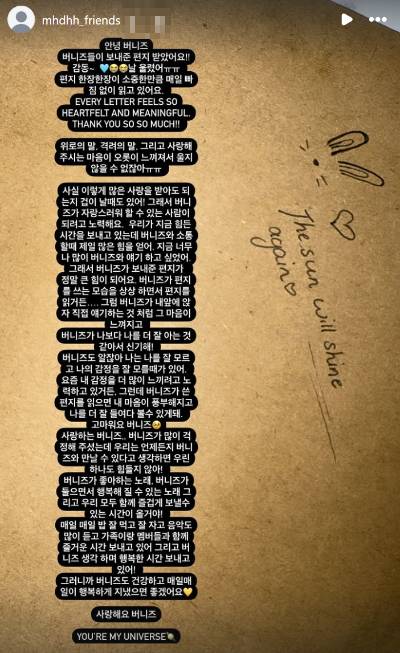 mhdhh_friends
안녕 버니즈
버니즈들이 보내준 편지 받았어요!!
감동~ 🩵🥹🥹날 울렸어ㅠㅠ
편지 한장한장이 소중한만큼 매일 빠
짐 없이 읽고 있어요.
EVERY LETTER FEELS SO
HEARTFELT AND MEANINGFUL.
THANK YOU SO SO MUCH!!
위로의 말, 격려의 말, 그리고 사랑해
주시는 마음이 오롯이 느껴져서 울지
않을 수 없잖아ㅠㅠ
사실 이렇게 많은 사랑을 받아도 되
는지 겁이 날때도 있어! 그래서 버니
즈가 자랑스러워 할 수 있는 사람이
되려고 노력해요. 우리가 지금 힘든
시간을 보내고 있는데 버니즈와 소통
할때 제일 많은 힘을 얻어. 지금 너무
나 많이 버니즈와 얘기 하고 싶었어.
그래서 버니즈가 보내준 편지가
정말 큰 힘이 되어요. 버니즈가 편지
를 쓰는 모습을 상상 하면서 편지를
읽거든.... 그럼 버니즈가 내앞에 앉
자 직접 얘기하는 것 처럼 그 마음이
느껴지고
버니즈가 나보다 나를 더 잘 아는 것
같아서 신기해!
버니즈도 알잖아 나는 나를 잘 모르
고 나의 감정을 잘 모를때가 있어.
요즘 내 감정을 더 많이 느끼려고 노
력하고 있거든, 그런데 버니즈가 쓴
편지를 읽으면 내 마음이 풍부해지고
나를 더 잘 들여다 볼수 있게돼.
고마워요 버니즈🥹
사랑하는 버니즈.. 버니즈가 많이 걱
정해 주셨는데 우리는 언제든지 버니
즈와 만날 수 있다고 생각하면 우린
하나도 힘들지 않아!
버니즈가 좋아하는 노래, 버니즈가
들으면서 행복해 질 수 있는 노래 그
리고 우리 모두 함께 즐겁게 보낼수
있는 시간이 올거야!
매일 매일 밥 잘 먹고 잘 자고 음악도
많이 듣고 가족이랑 멤버들과 함께
즐거운 시간 보내고 있어 그리고 버
니즈 생각 하며 행복한 시간 보내고
있어!
그러니까 버니즈도 건강하고 매일매
일이 행복하게 지냈으면 좋겠어요💛
사랑해요 버니즈
YOU'RE MY UNIVERSE
The sun will shine
again♡